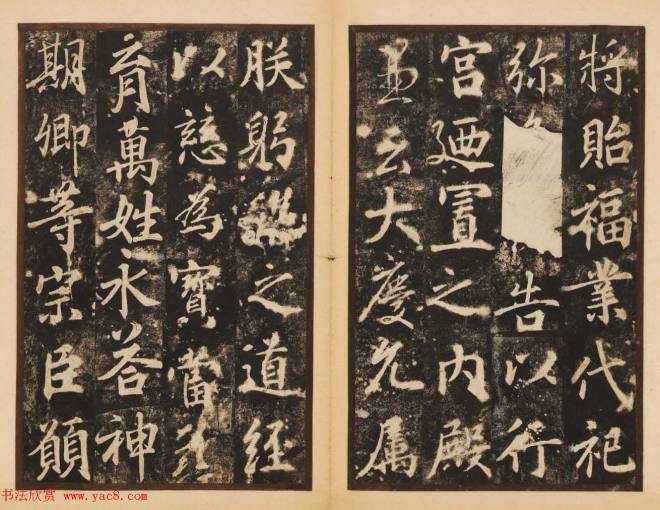 將貽福業代祀
弥告以行
宫廼置之内殿
且云大慶允属
朕躬之道經
以慈為寶當
育萬姓永荅神
期卿等宗臣願
书法欣赏 www.yac8.com